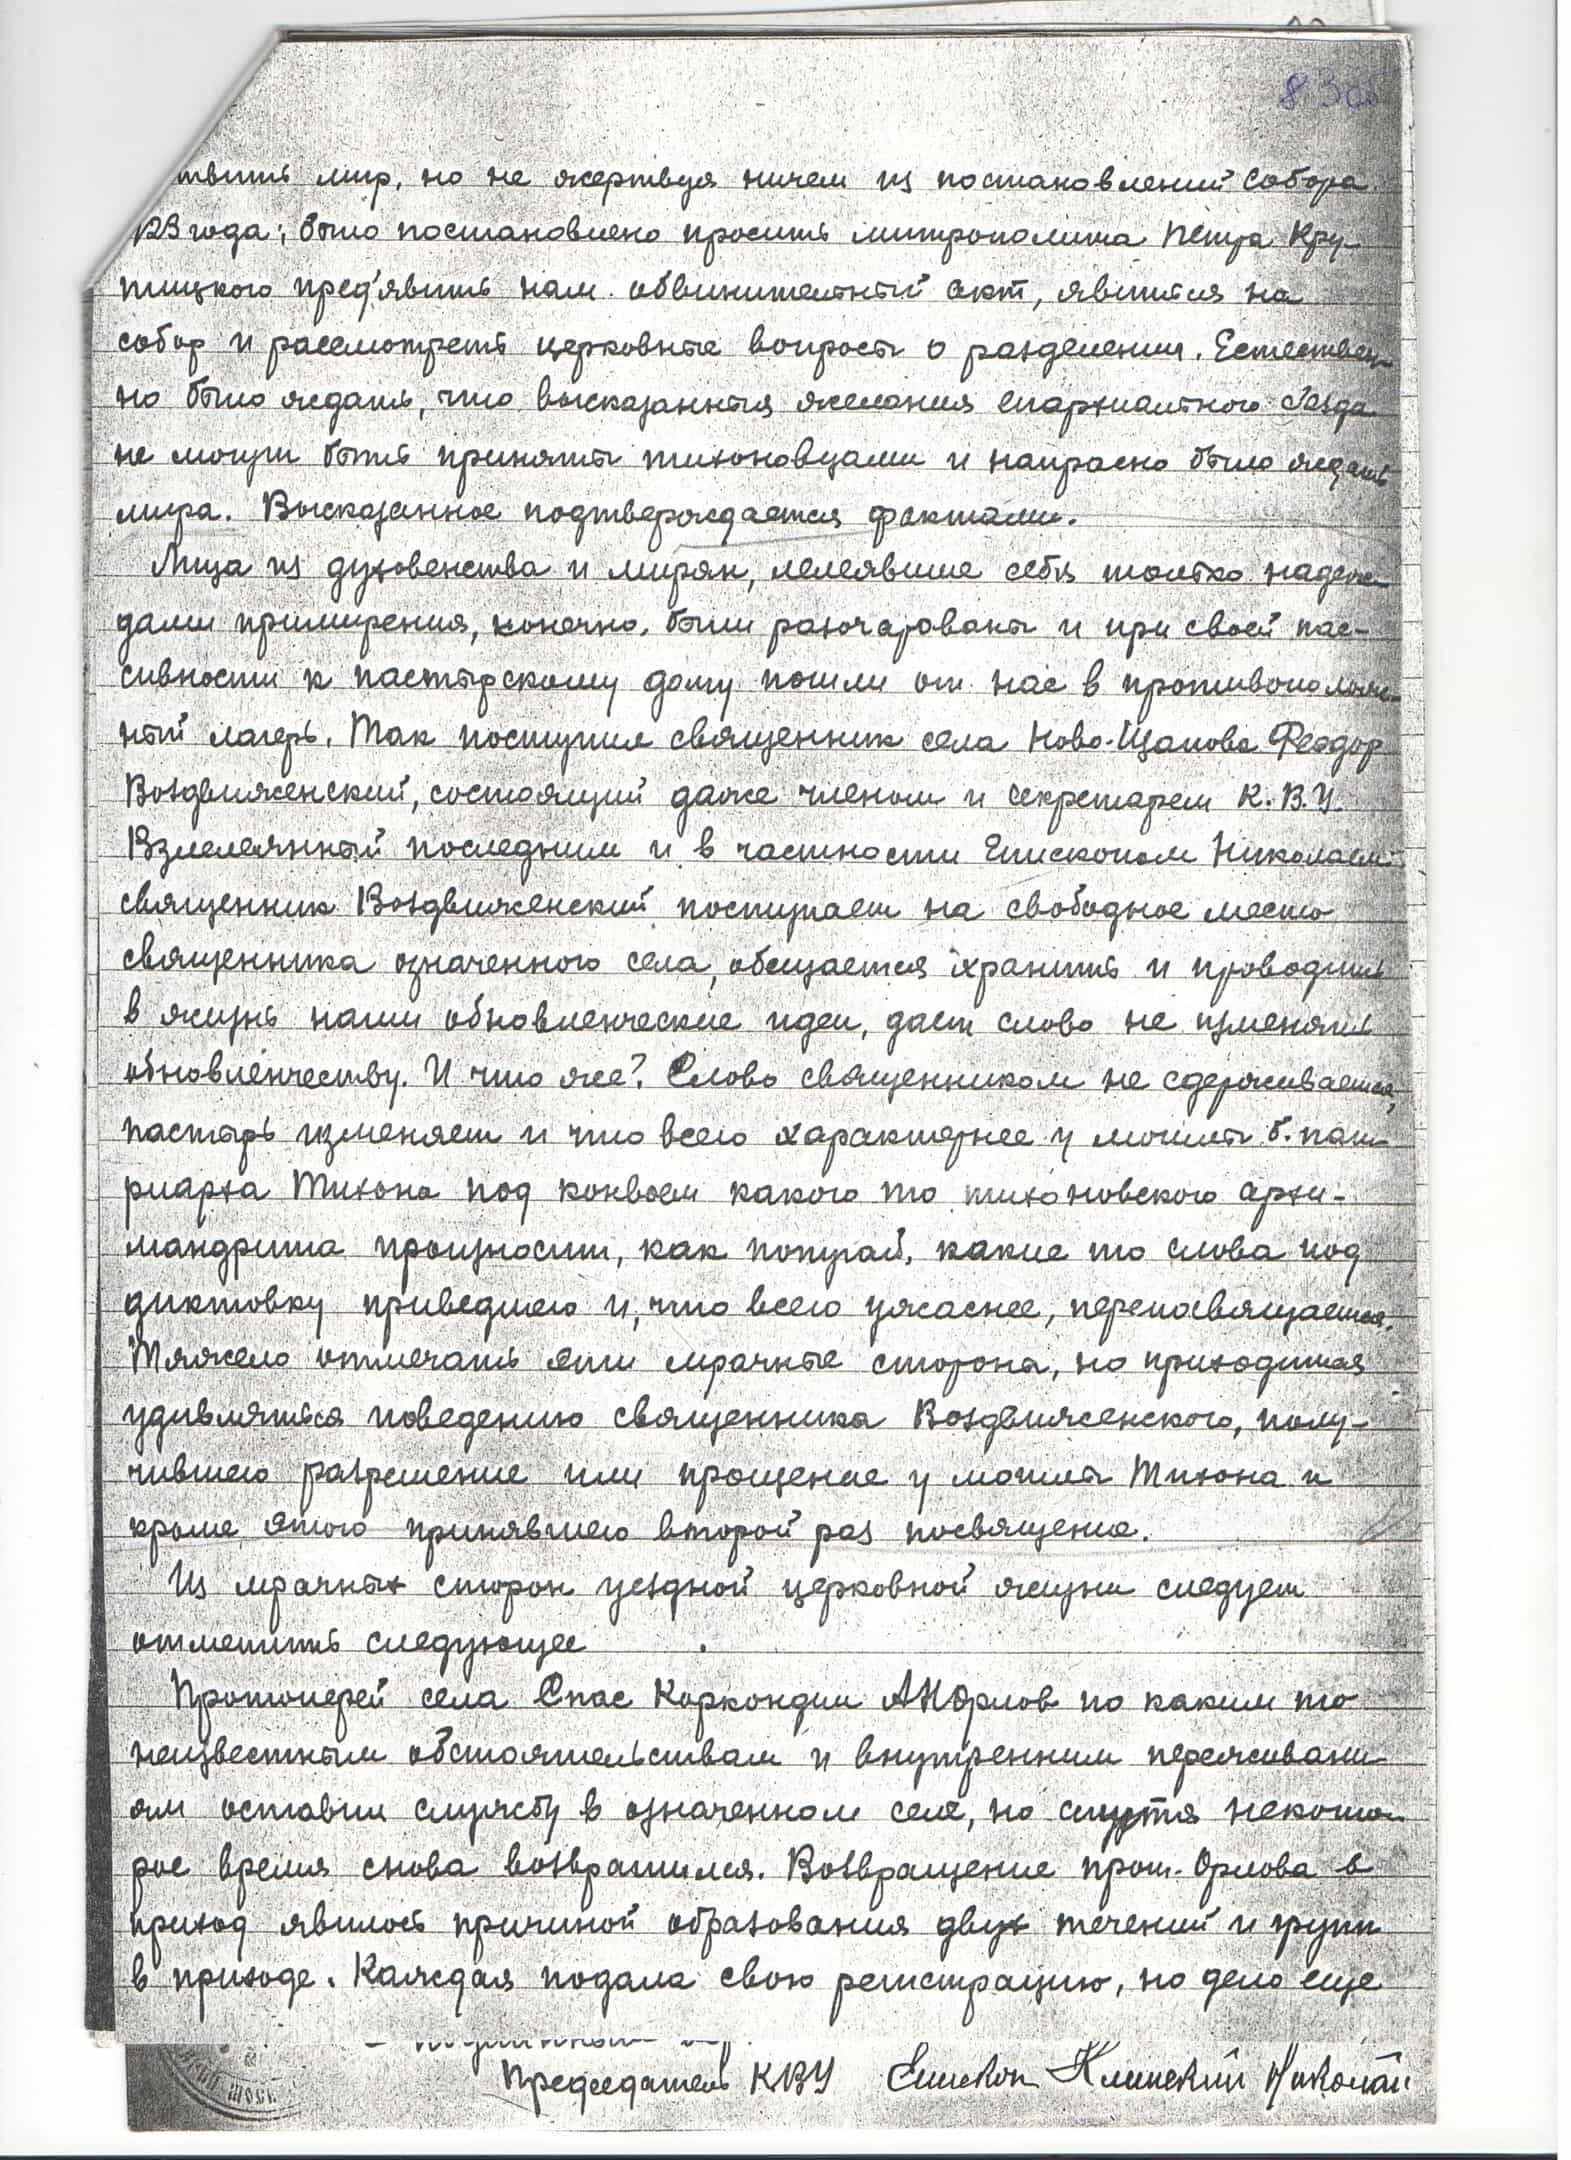 мир, но не жертвуя ничем из постановлений собора
23 года; было постановлено просить митрополита Петра Кру-
тицкого пред'явить нам обвинительный акт, явится на
собор и рассмотреть церковные вопросы о разделении. Естествен
но было ждать, что высказанныя желания епархиального с'езда
не могут быть приняты тихоновцами и напрасно было ждать
мира. Высказанное подтверждается фактами.
Лица из духовенства и мирян, лелеявшие себя только надеж
дами примирения, конечно, были разочарованы и при своей пас-
сивности к пастырскому долгу пошли от нас в противополож-
ный лагерь. Так поступил священник села Ново-Щапова Феодор
Воздвиженский, состоящий даже членом и секретарем К.В.У.
Взлелеянный последним и в частности Епископом Николаем
священник Воздвиженский поступает на свободное место
священника означенного села, обещается хранить и проводить
в жизнь наши обновленческие идеи, дает слово не изменять
обновленчеству. И что же? Слово священником не сдерживается,
пастырь изменяет и что всего характернее у могилы б. пат-
риарха Тихона под конвоем какого то тихоновского архи-
мандрита произносит, как попугай, какие то слова под
диктовку приведшего и, что всего ужаснее, перепосвящается.
Тяжело отмечать эти мрачные стороны, но приходится
удивляться поведению священника Воздвиженского, полу-
чившего разрешение или прощение у могилы Тихона и
кроме этого принявшего второй раз посвящение.
Из мрачных сторон уездной церковной жизни следует
отметить следующее
Протоиерей села Спас Коркондин А Н Орлов по каким то
неизвестным обстоятельствам и внутренним переживани-
ям оставил службу в означенном селе, но спустя некото-
рое время снова возвратился. Возвращение прот. Орлова в
приход явилось причиной образования двух течений и групп
в приходе. Каждая подала свою регистрацию, но дело еще
Председатель КВУ Епископ Клинский Николай